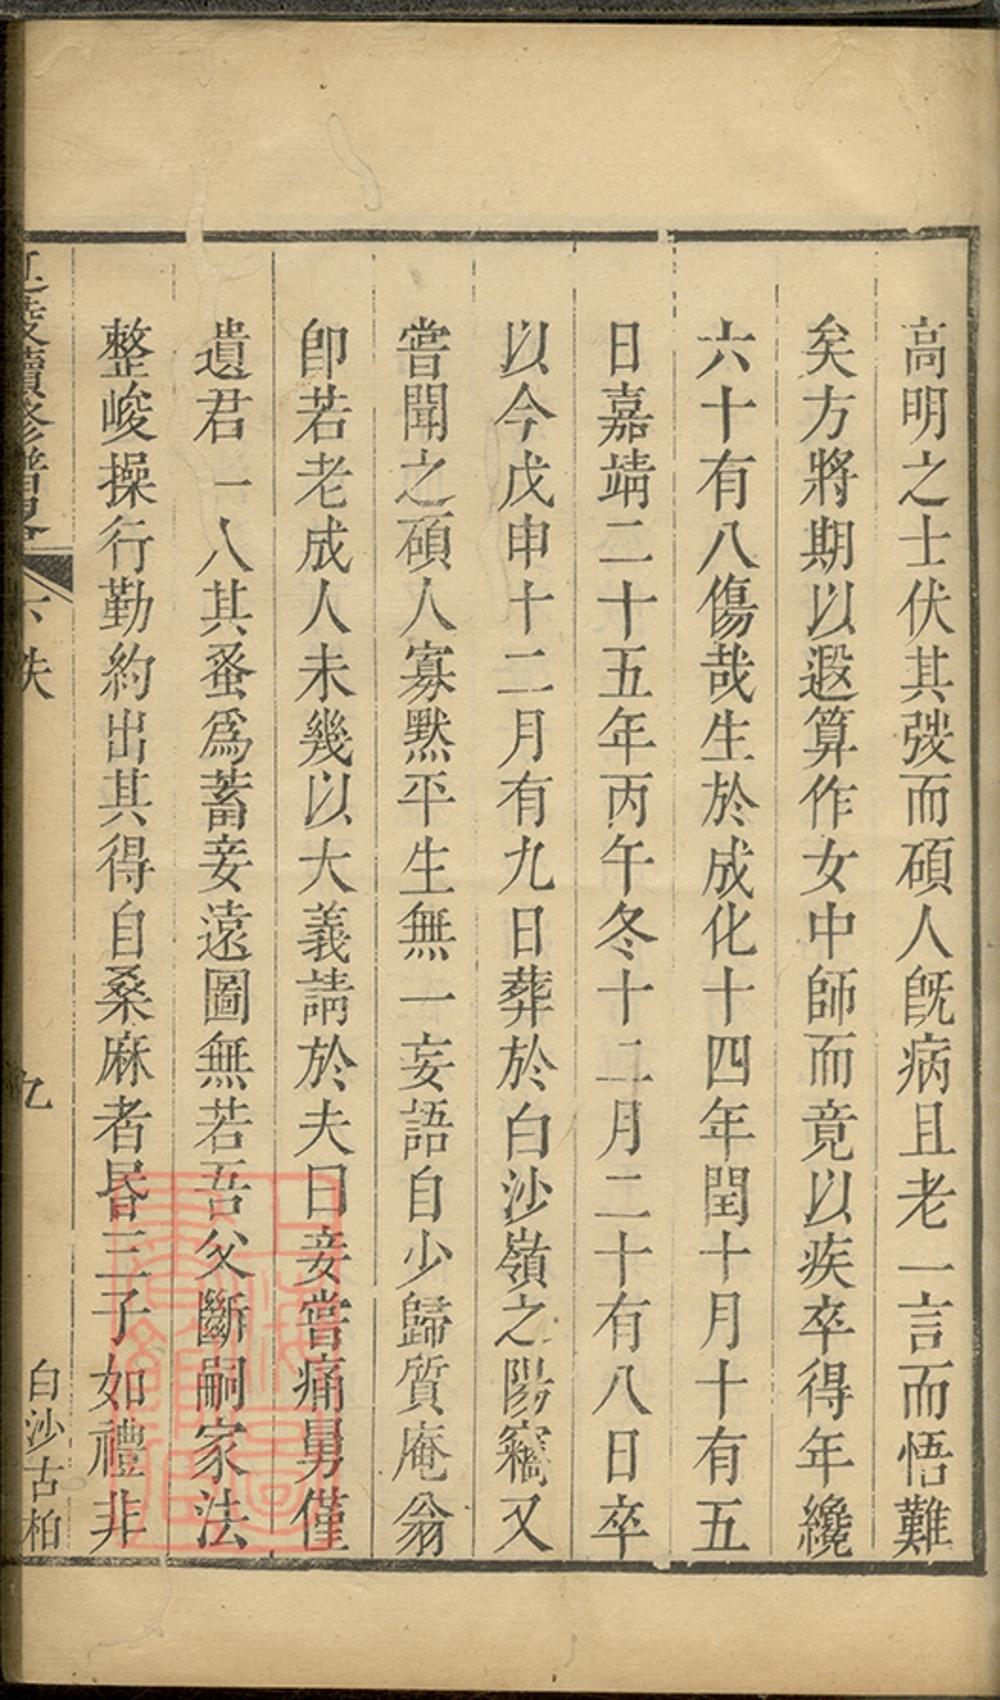 高明之士伏其弢而碩人既病且老一言而悟難
矣方將期以遐算作女中師而竟以疾卒得年纔
六十有八傷哉生於成化十四年閏十月十有五
日嘉靖二十五年丙午冬十二月二十有八日卒
以今戊申十二月有九日葬於白沙嶺之陽竊又
嘗聞之碩人寡默平生無一妄語自少歸質庵翁
卽若老成人未幾以大義請於夫曰妾嘗痛舅僅
遺君一人其蚤爲蓄妾遠圖無若吾父斷嗣家法
整峻操行勤約出其得自桑麻者昏三子如禮非
續修譜
九
白沙古柏